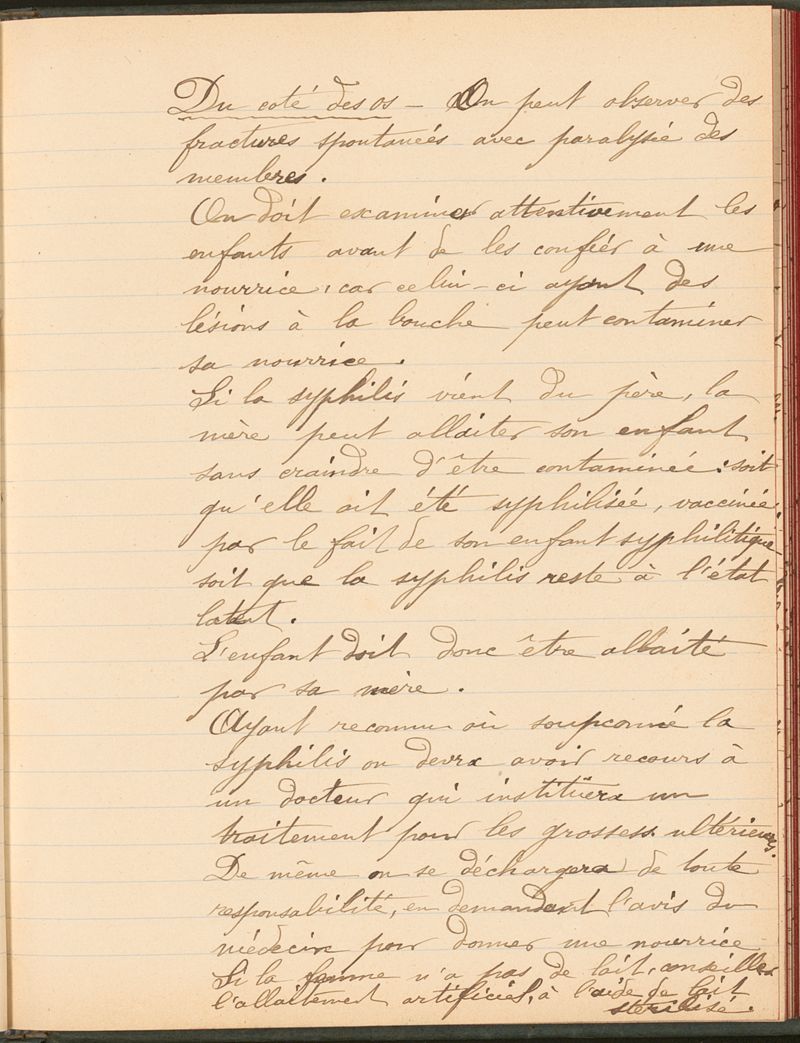 Du coté des os – On peut observer des
fractures spontanées avec paralysie des
membres.
On doit examiner attentivement les
enfants avant de les confiér à une
nourrice, car celui-ci ayant des
lésions à la bouche peut contaminer
sa nourrice.
Si la syphilis vient du père, la
mère peut allaiter son enfant
sans craindre d'être contaminée: soit
qu'elle ait été syphilisée, vaccinée,
par le fait de son enfant syphilitique
soit que la syphilis reste à l'état
latent.
L'enfant doit donc être allaité
par sa mère.
Ayant reconnu où soupconné la
syphilis on devra avoir recours à
un docteur qui instituera un
traitement pour les grossess ultérieurs.
De même on se déchargera de toute
responsabilité, en demandant l'avis du
médecin pour donner une nourrice
Si la femme n'a pas de lait, conseiller
l'allaitement artificiel, à l'aide de lait
stérilisé.